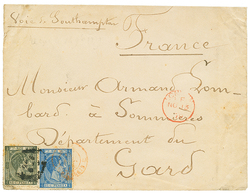 Voie de Southampton
France
Monsieur Armand Lom-
bard. à Sommières
Département du
Gard